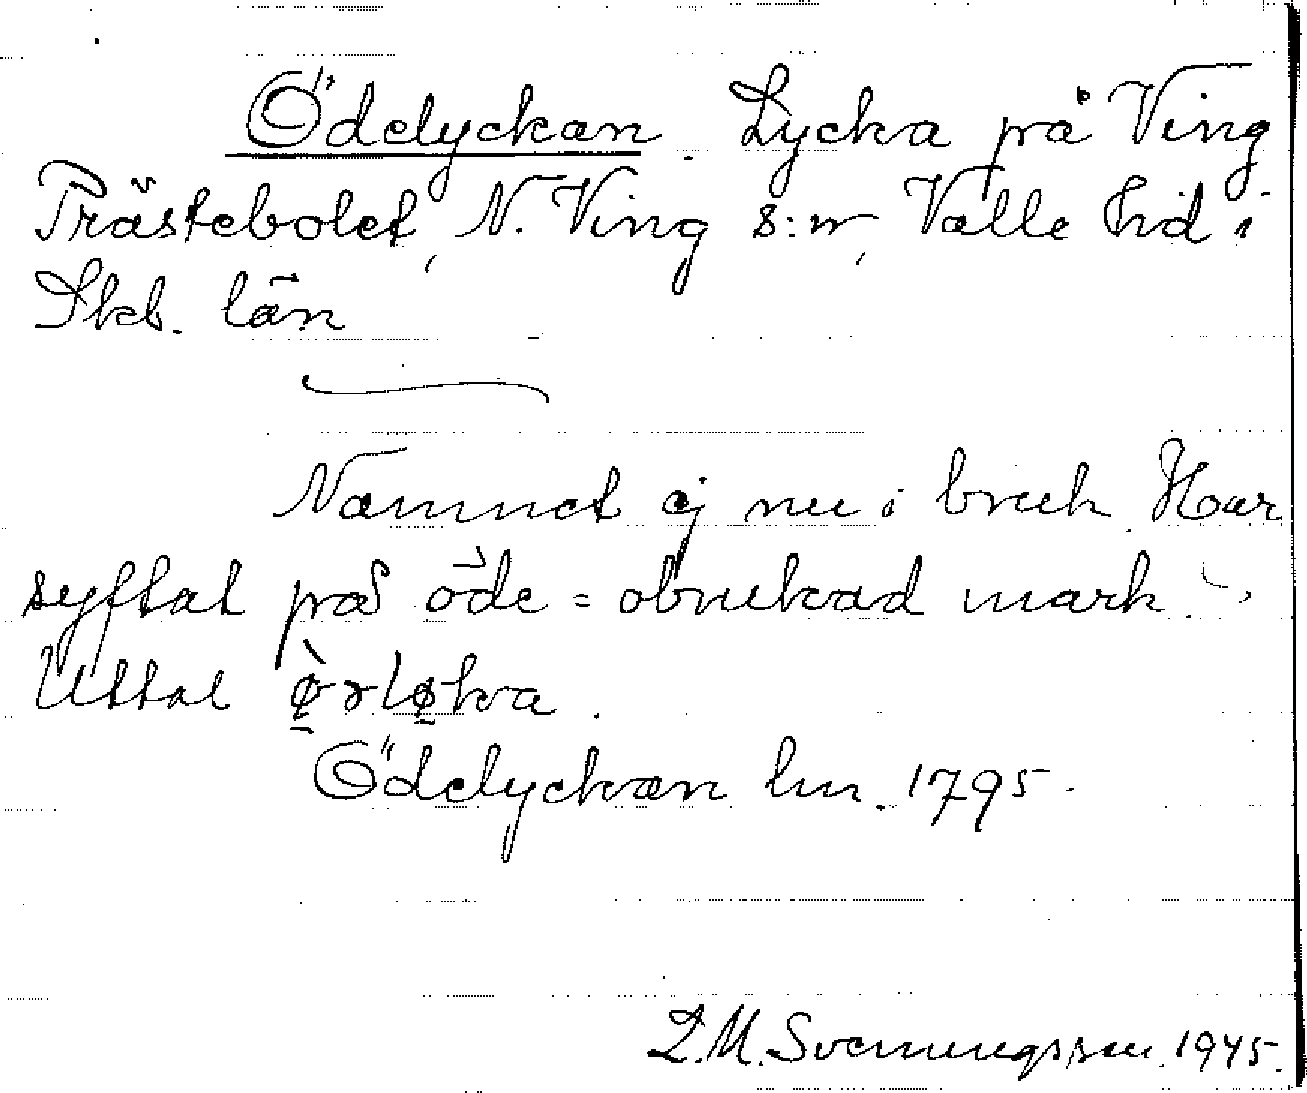 Ödelyckan. Lycka på Ving
Prästebolet, N. Ving s:n, Valle hd i
Skb. län
Namnet ej nu i bruk. Har
syftat på öde = obrukad mark.
Uttal
Ödelyckan lm. 1795.
L.M. Svenungsson. 1945.